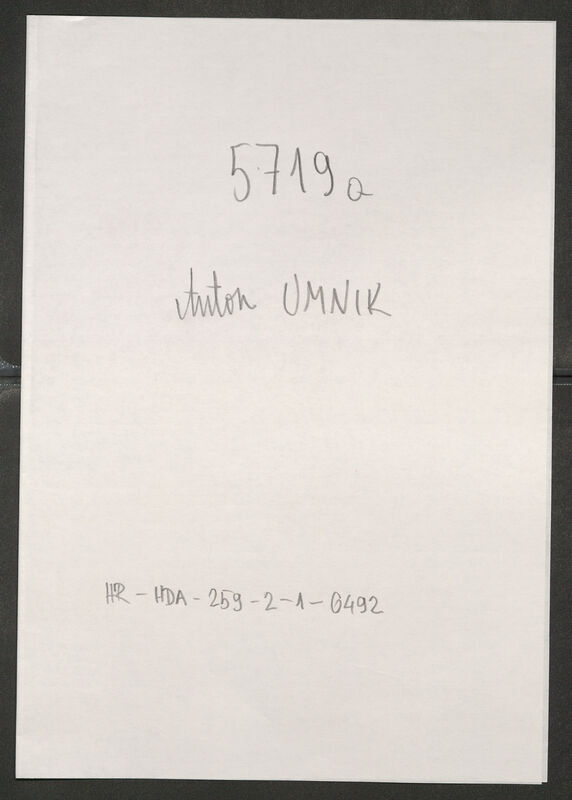 5719a
Anton UMNIK
HR-HDA-259-2-1-6492